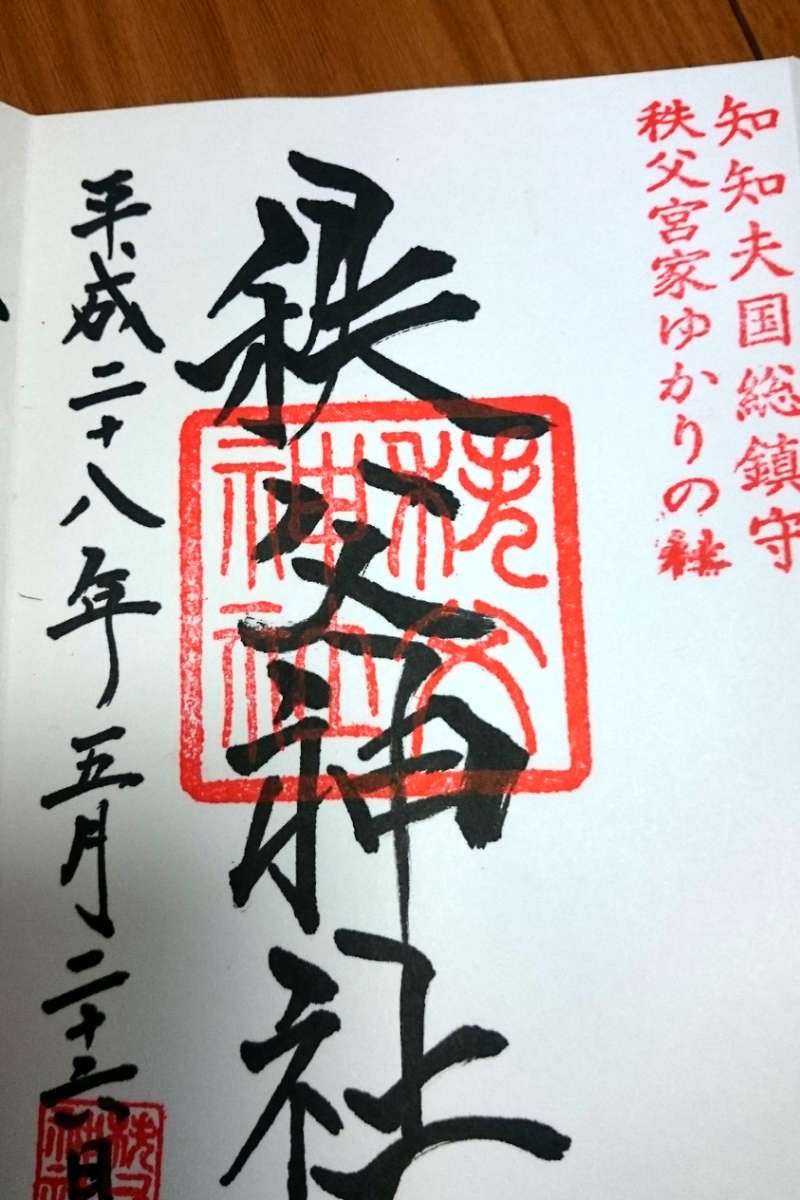 知知夫国総鎮守
秩父宮家ゆかりの社
秩父神社
秩父
神社
平成二十八年五月二十六日